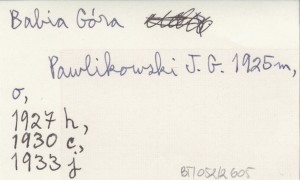 Babia Góra
Pawlikowski J. G. 1925m,
o,
1927 h,
1930 c,
1933 j
BT/052/2605